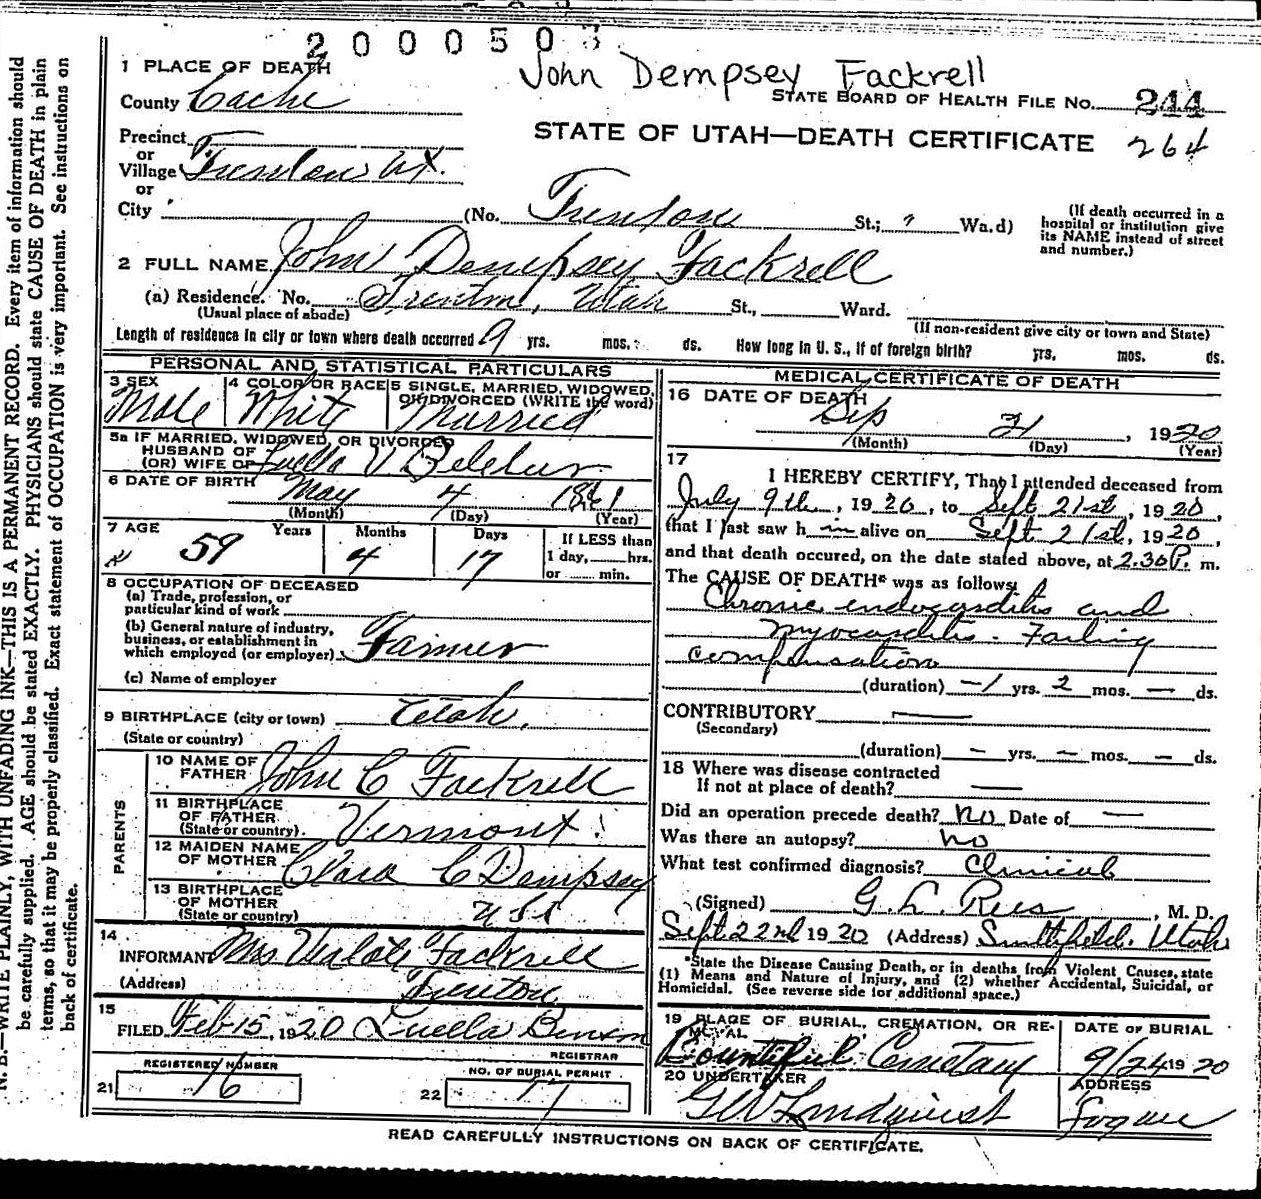 2000503
John Dempsey Fackrell
1 PLACE OF DEATH
STATE BOARD OF HEALTH FILE NO. 244
County Cache
STATE OF UTAH—DEATH CERTIFICATE 264
Precinct
or
Village Trenton Ut.
or
City (No. Trenton St.; " Wa.d)
(If death occurred in a
hospital or institution give
its NAME instead of street
and number.)
2 FULL NAME John Dempsey Fackrell
(a) Residence. No. Trenton, Utah St., Ward.
(Usual place of abode)
(If non-resident give city or town and State)
Length of residence in city or town where death occurred 9 yrs. mos. ds. How long in U. S., if of foreign birth? yrs. mos. ds.
PERSONAL AND STATISTICAL PARTICULARS
3 SEX
Male
4 COLOR OR RACE
White
5 SINGLE, MARRIED, WIDOWED,
OR DIVORCED (WRITE the word)
Married
5a IF MARRIED, WIDOWED, OR DIVORCED
HUSBAND OF
(OR) WIFE OF Luella V
6 DATE OF BIRTH May 4 1861
(Month) (Day) (Year)
7 AGE Years Months Days
59 4 17
If LESS than
1 day, hrs.
or min.
8 OCCUPATION OF DECEASED
(a) Trade, profession, or
particular kind of work
(b) General nature of industry,
business, or establishment in
which employed (or employer) Farmer
(c) Name of employer
9 BIRTHPLACE (city or town) Utah.
(State or country)
PARENTS
10 NAME OF
FATHER John C Fackrell
11 BIRTHPLACE
OF FATHER
(State or country). Vermont
12 MAIDEN NAME
OF MOTHER Clara C Dempsey
13 BIRTHPLACE
OF MOTHER
(State or country)
14
INFORMANT Mrs Fackrell
(Address) Trenton
15
FILED Feb 15, 1920 Luella Benson
REGISTRAR
REGISTERED NUMBER
21 16
NO. OF BURIAL PERMIT
22 17
MEDICAL CERTIFICATE OF DEATH
16 DATE OF DEATH
Sep 21, 1920
(Month) (Day) (Year)
17
I HEREBY CERTIFY, That I attended deceased from
July 9th, 1920, to Sept 21st, 1920,
that I last saw h im alive on Sept 21st, 1920,
and that death occured, on the date stated above, at 2.30 P. m.
The CAUSE OF DEATH* was as follows:
Chronic endocarditis and
myocarditis. Failing
compensation
(duration) 1 yrs. 2 mos. — ds.
CONTRIBUTORY —
(Secondary)
(duration) — yrs. — mos. — ds.
18 Where was disease contracted
If not at place of death? —
Did an operation precede death? No Date of —
Was there an autopsy? No
What test confirmed diagnosis? Clinical
(Signed) G. L. Rees, M. D.
Sept 22nd 1920 (Address) Smithfield. Utah
*State the Disease Causing Death, or in deaths from Violent Causes, state
(1) Means and Nature of Injury, and (2) whether Accidental, Suicidal, or
Homicidal. (See reverse side for additional space.)
19 PLACE OF BURIAL, CREMATION, OR RE-
MOVAL
Bountiful Cemetary
DATE OF BURIAL
9/24 1920
20 UNDERTAKER
G W Lindquist
ADDRESS
Logan
READ CAREFULLY INSTRUCTIONS ON BACK OF CERTIFICATE.
N. B.—WRITE PLAINLY, WITH UNFADING INK—THIS IS A PERMANENT RECORD. Every item of information should
be carefully supplied. AGE should be stated EXACTLY. PHYSICIANS should state CAUSE OF DEATH in plain
terms, so that it may be properly classified. Exact statement of OCCUPATION is very important. See instructions on
back of certificate.